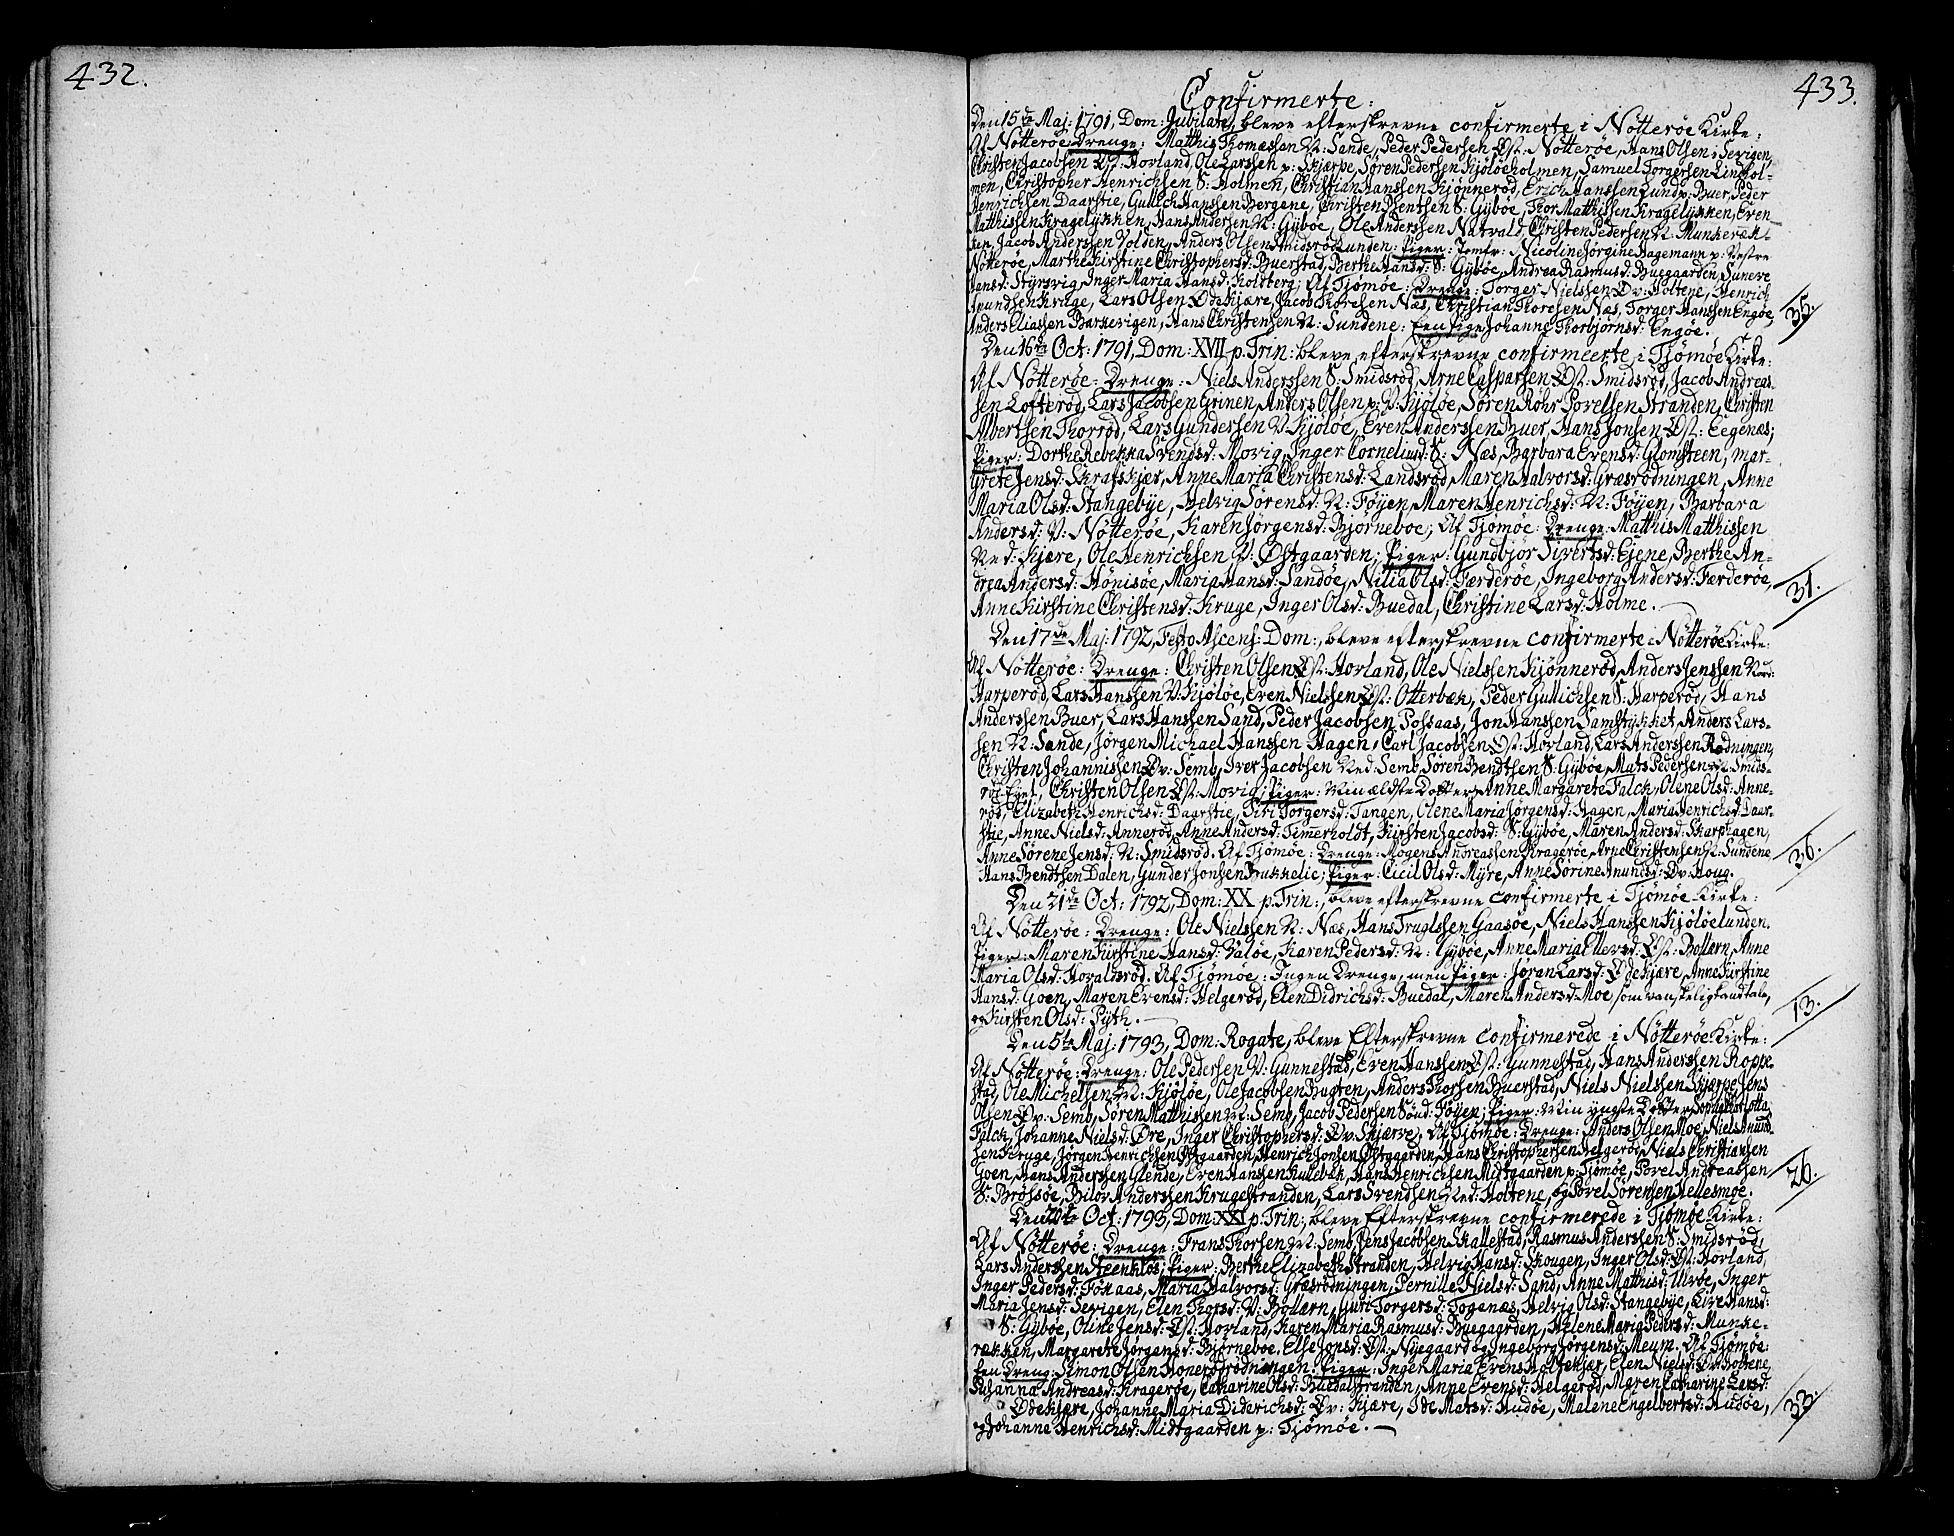 432.
433.
Confirmerte:
Den 15de Maj: 1791, Dom: Jubilate, bleve efterskrevne confirmerte i Nötteröe Kirke:
Af Nötteröe Drenge: Matthis Thomassen N: Sande, Peder Pedersen Öst: Nötteröe, Hans Olsen i Sevigen,
Christen Jacobsen Öst: Hovland, Ole Larssen p: Skjærpe, Sören Pedersen Kjölöeholmen, Samuel Torgersen Linhol-
men, Christopher Henrichsen S: Holmen, Christian Hanssen Kjönneröd, Erich Hanssen Lund p: Buer, Peder
Henrichsen Daarstie, Gullich Hanssen Bergene, Christen Bentsen S: Gÿböe, Thor Matthissen Kragelÿkken, Even
Matthissen Kragelÿkken, Hans Andersen N: Gÿböe, Ole Anderssen Natvald, Christen Pedersen N: Munkeræk-
ken, Jacob Anderssen Volden, Anders Olsen Smidsröd Lunden: Piger: Jomfr: Nicoline Jörgine Hagemann p: Vestre
Nötteröe, Marthe Kirstine Christophersd: Buerstad, Berthe Hansd: S: Gÿböe, Andrea Rasmusd: Buegaarden, Suneve
Hansd: Stÿrsvig, Inger Maria Hansd: Holdberg; Af Tjömöe: Drenge: Torger Nielssen Öv: Holtene, Henrich
Amundsen Kruge, Lars Olsen Ödekjære, Jacob Thoresen Næs, Christian Thoresen Næs, Torger Hanssen Engöe,
Anders Eliassen Barkevigen, Hans Christensen N: Sundene: Een Pige Johanne Thorbjörnsd: Engöe.
35.
Den 16de Oct: 1791, Dom: XVII p. Trin: bleve efterskrevne confirmeerte i Tjömöe Kirke:
Af Nötteröe: Drenge: Niels Anderssen S: Smidsröd, Arne Caspersen Öst: Smidsröd, Jacob Andreas-
sen Lofteröd, Lars Jacobsen Grinen, Anders Olsen p: V: Kjölöe, Sören Röhr Povelsen Stranden, Christen
Albertsen Thorröd, Lars Gundersen V: Kjölöe, Even Anderssen Buer, Hans Jonsen Öst: Eegenæs;
Piger: Dorthe Rebekka Svendsd: Movig, Inger Corneliusd: S: Næs, Barbara Evensd: Glomsteen, Mar-
grete Jensd: Skrafskjær, Anne Maria Christensd: Landsröd, Maren Halvorsd: Græsrödningen, Anne
Maria Olsd: Stangebÿe, Helvig Sörensd: N: Föÿen, Maren Henrichsd: N: Föÿen, Barbara
Andersd: V: Nötteröe, Karen Jörgensd: Bjórneboe; Af Tjömöe: Drenge: Matthis Matthissen
Ned: Kjære, Ole Henrichsen V: Östgaarden; Piger: Gundbjör Sivertsd: Ejene, Berthe An-
drea Andersd: Hönisöe, Maria Hansd: Sandöe, Nilia Olsd: Færderöe, Ingeborg Andersd: Færderöe,
Anne Kirstine Christensd: Kruge, Inger Olsd: Buedal, Christine Larsd: Holme.
31.
Den 17de Maj: 1792, Festo Ascens: Dom:, bleve efterskrevne confirmerte i Nötteröe Kirke:
Af Nötteröe: Drenge: Christen Olsen Öst: Hovland, Ole Nielssen Kjönneröd, Anders Jenssen Nor:
Harperöd, Lars Hanssen V: Kjölöe, Even Nielssen Öst: Otterbæk, Peder Gullichsen S: Harperöd, Hans
Anderssen Buer, Lars Hanssen Sand, Peder Jacobsen Polsaas, Jon Hanssen Samstÿkket, Anders Lars-
sen N: Sande, Jörgen Michael Hanssen Hagen, Carl Jacobsen Öst: Hovland, Lars Anderssen Rödningen,
Christen Johannissen Öv: Semb, Iver Jacobsen Ned: Semb, Sören Bendtsen S: Gÿböe, Mats Pedersen N: Smids-
röd Eget, Christen Olsen Öst: Movig; Piger: Min ældste Dotter Anne Margarete Falck, Olene Olsd: Anne-
röd, Elizabeth Henrichsd: Daarstie, Siri Torgersd: Tangen, Olene Maria Jörgensd: Hagen, Maria Henrichsd: Daar-
stie, Anne Nielsd: Anneröd, Anne Andersd: Timerholdt, Kirsten Jacobsd: S: Gÿböe, Maren Andersd: Skarphagen,
Anne Sörene Jensd: N: Smidsröd. Af Tjömöe: Drenge: Mogens Andreassen Krageröe, Arne Christensen N: Sundene
Hans Bendtsen Dalen, Gunder Jonsen Bukkelie; Piger: Cicil Olsd: Mÿre, Anne Sorine Anundsd: Öv: Houg.
36.
Den 21de Oct: 1792, Dom: XX p. Trin:, bleve efterskrevne confirmerte i Tjömöe Kirke:
Af Nötteröe: Drenge: Ole Nielssen N: Næs, Hans Truglssen Gaasöe, Niels Hanssen Kjölöelunden.
Piger: Maren Kirstine Hansd: Valöe, Karen Pedersd: N: Gÿböe, Anne Maria Ellevsd: Öst: Bollærn, Anne
Maria Olsd: Hovaldsröd. Af Tjömöe: Ingen Drenge, men Piger: Jöran Larsd: Ödekjære, Anne Kirstine
Hansd: Goen, Maren Evensd: Helgeröd, Elen Didrichsd: Buedal, Maren Andersd: Moe, som vanskelig kand tale,
og Kirsten Olsd: Pÿth.
13.
Den 5te Maj: 1793, Dom: Rogate, bleve Efterskrevne confirmerede i Nötteröe Kirke:
Af Nötteröe: Drenge: Ole Pedersen V: Gunnestad, Even Hanssen Öst: Gunnestad, Hans Anderssen Roppe-
stad, Ole Michelsen N: Kjölöe, Ole Jacobsen Bugten, Anders Thorsen Buerstad, Niels Nielssen Skjærpe, Jens
Olsen Öv: Semb, Sören Matthissen N: Semb, Jacob Pedersen Sönd: Föÿen; Piger: Min ÿngste Dotter Sophie Charlotta
Falck, Johanne Nielsd: Öre, Inger Christophersd: Öv: Skjærve; Af Tjömöe: Drenge: Anders Olsen Moe, Niels Amund-
sen Kruge, Jörgen Henrichsen Östgaarden, Henrich Jonsen Östgaarden, Hans Christophersen Helgeröd, Niels Christiansen
Goen, Hans Anderssen Glende, Even Hansen Kullebæk, Hans Henrichsen Midtgaarden p: Tjömöe, Povel Andreassen
S: Brötsöe, Bilov Anderssen Krugestranden, Lars Svendsen Ned: Holtene, og Povel Sörensen Hellesmoe.
26.
Den 20de Oct: 1793, Dom: XXI p. Trin:, bleve Efterskrevne confirmerede i Tjömöe Kirke:
Af Nötteröe: Drenge: Frans Thorsen N: Semb, Jens Jacobsen Skallestad, Rasmus Anderssen S: Smidsröd,
Lars Anderssen Steenklös; Piger: Berthe Elizabeth Stranden, Helvig Hansd: Skougen, Inger Olsd: Öst: Hovland,
Inger Pedersd: Fökaas, Maria Halvorsd: Græsrödningen, Pernille Nielsd: Sand, Anne Matthisd: Ulvöe, Inger
Maria Jensd: Sevigen, Elen Thorsd: V: Bollærn, Guri Torgersd: Togenæs, Helvig Olsd: Stangebÿe, Live Hansd:
S: Gÿböe, Oline Jensd: Öst: Hovland, Karen Maria Rasmusd: Buegaarden, Helene Maria Pedersd: Munke-
rækken, Margarete Jörgensd: Bjórneboe, Else Jonsd: Öst: Nÿegaard og Ingeborg Jörgensd: Meum. Af Tjömöe:
Een Dreng: Simon Olsen Honerödrödningen: Piger: Inger Maria Evensd: Holtekjær, Elen Nielsd: Öv: Holtene,
Susanna Andreasd: Krageröe, Catharine Olsd: Buedalstranden, Anne Evensd: Helgeröd, Maren Catharine Larsd:
Ödekjære, Johanne Maria Diderichsd: Öv: Kjære, Ide Matsd: Hudöe, Malene Engelbertsd: Hudöe,
og Johanne Henrichsd: Midtgaarden p: Tjömöe.
33.